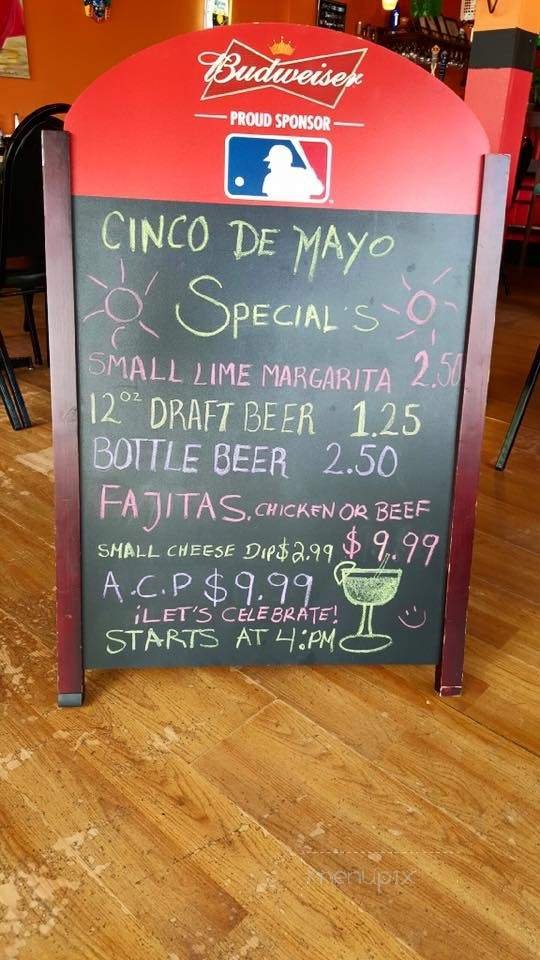 Budweiser
PROUD SPONSOR
CINCO DE MAYO
SPECIAL'S
SMALL LIME MARGARITA 2.50
12oz DRAFT BEER 1.25
BOTTLE BEER 2.50
FAJITAS. CHICKEN OR BEEF
SMALL CHEESE DIP $2.99 $9.99
A.C.P $9.99
¡LET'S CELEBRATE!
STARTS AT 4:PM
menupix